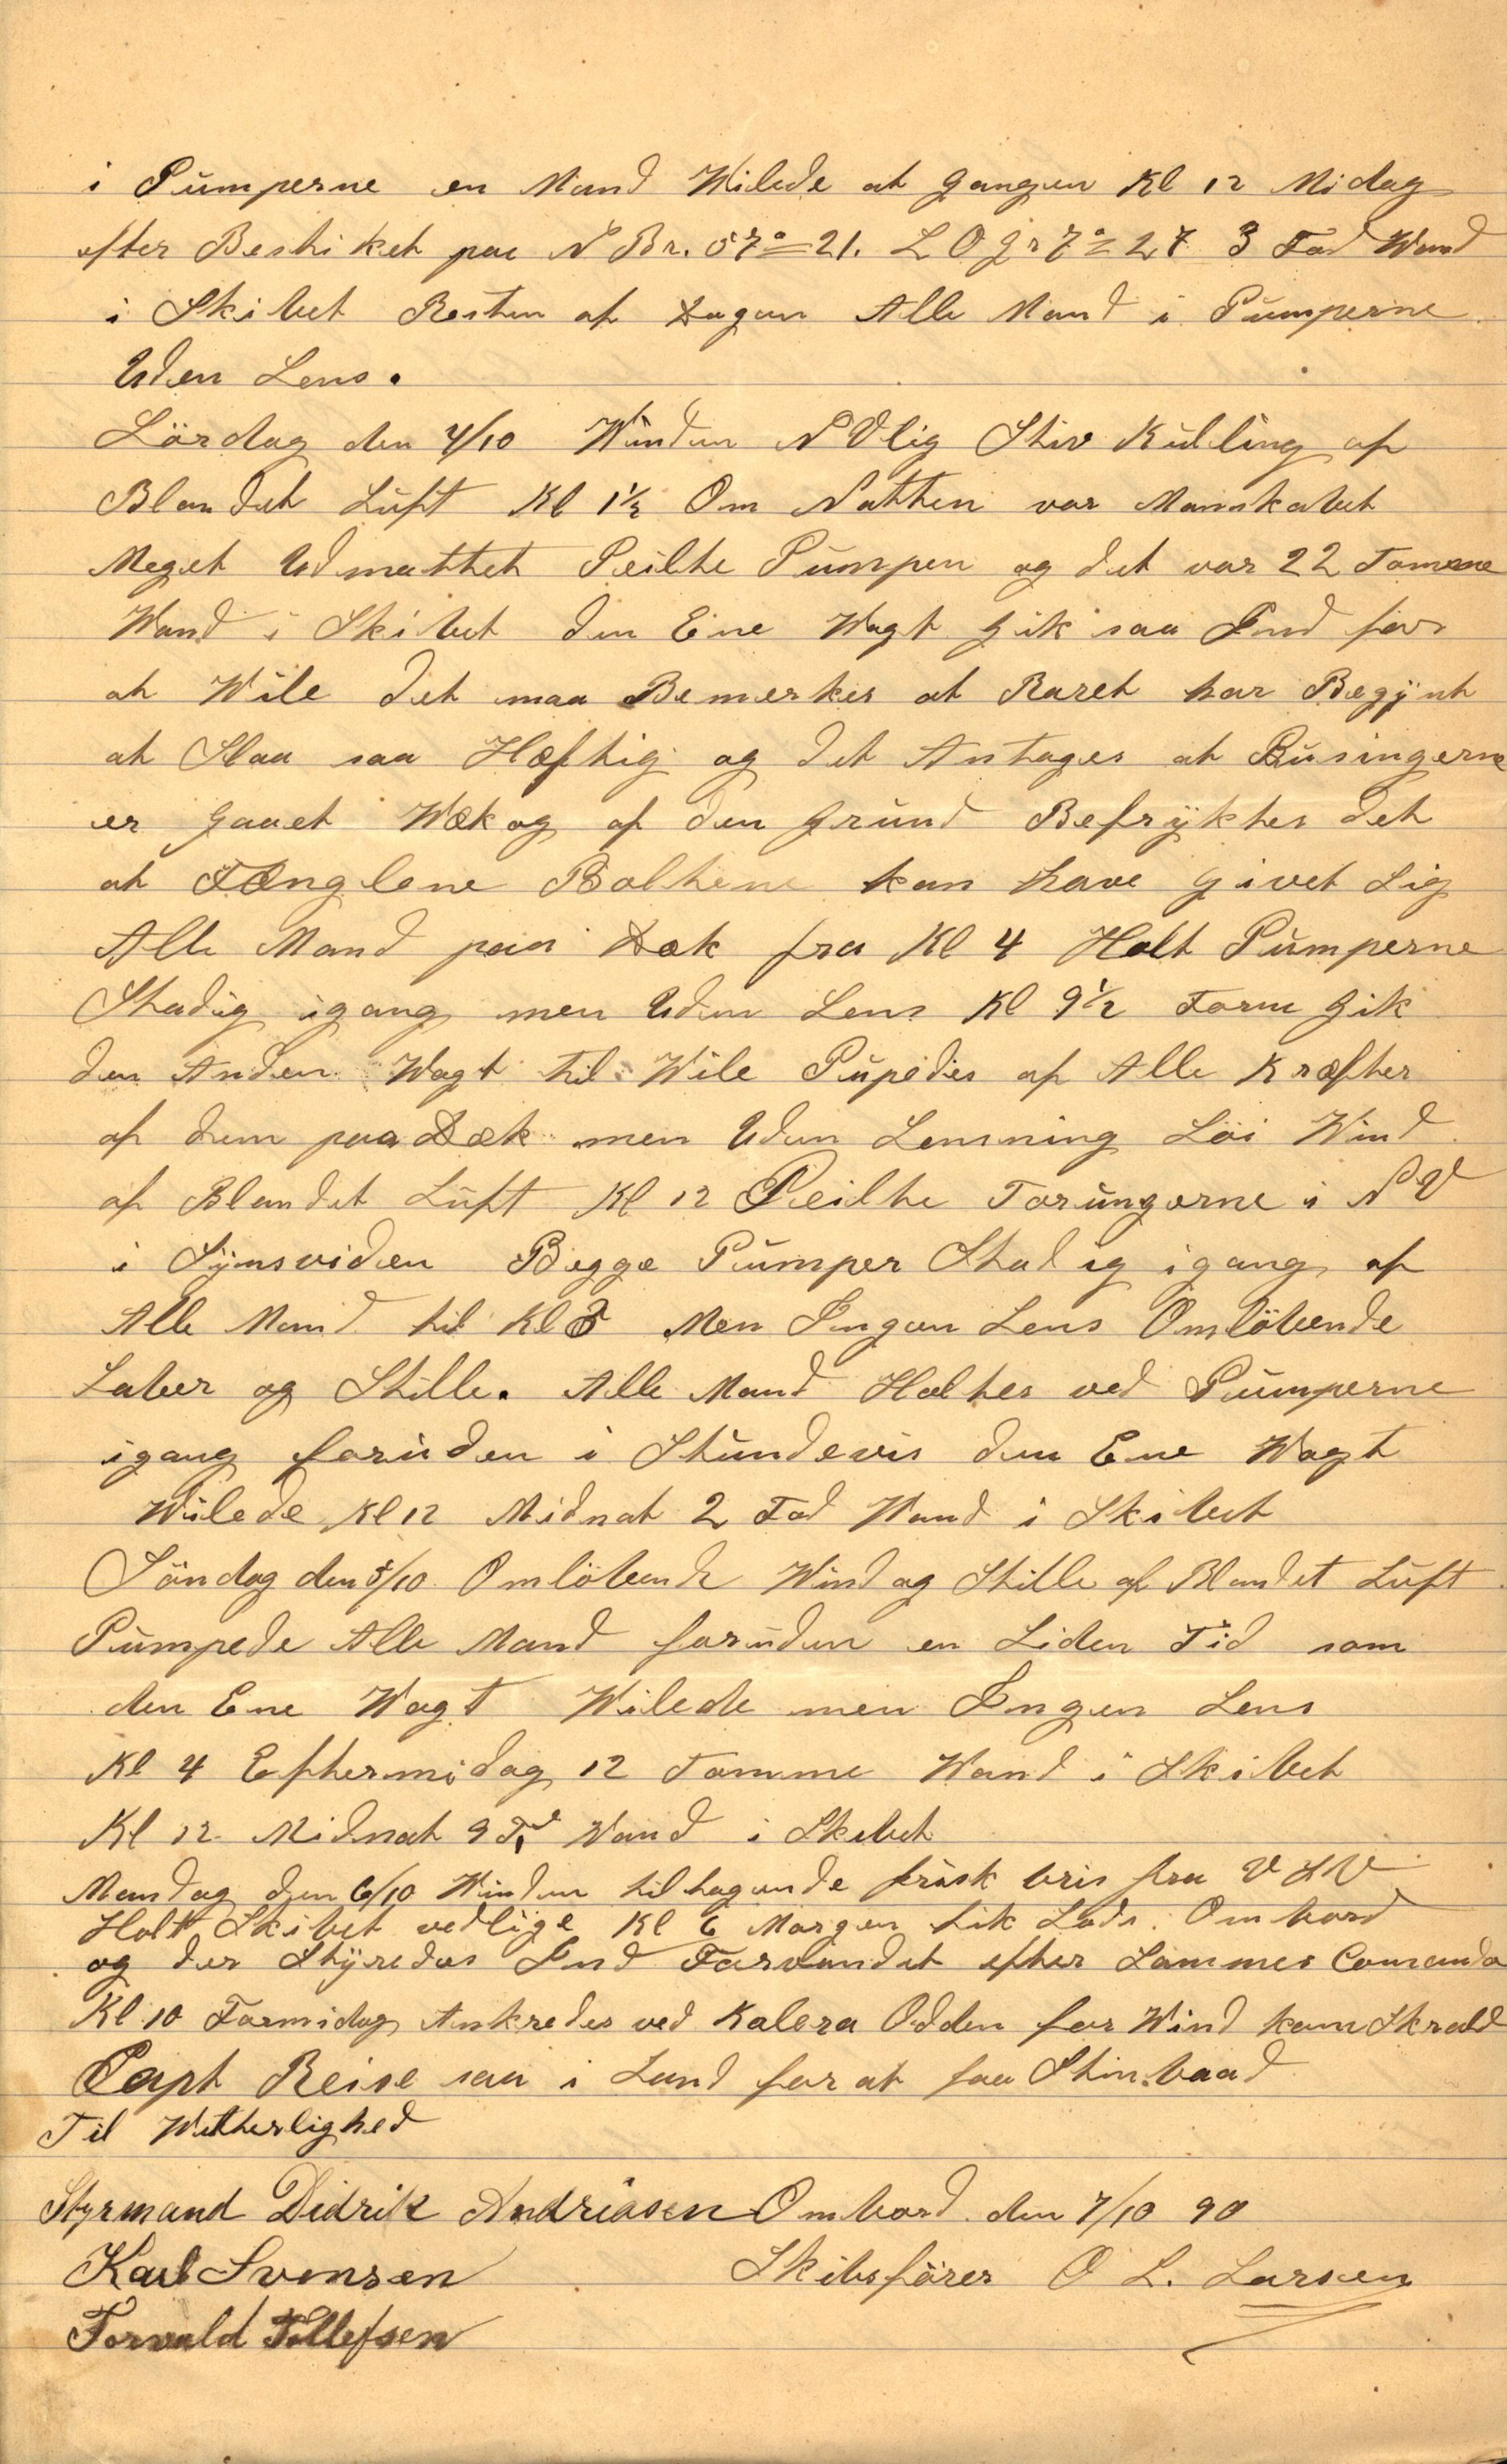 i Pumperne en Mand Wilede at gangen Kl 12 Midag
efter Bestiket paa N Br. 57°=21. L O Gr 7°=27 3 Fod Wand
i Skibet Resten af Dagen Alle Mand i Pumperne
Uden Lens.
Lördag den 4/10 Winden N Vlig Stiv Kulling af
Blandet Luft Kl 1½ Om Natten var Manskabet
Meget Udmattet Peilte Pumpen og det var 22 Tomme
Wand i Skibet den Ene Wagt Gik saa Ind for
at Wile det maa Bemerkes at Raret har Begynt
at Slaa saa Hæftig og det Antages at Busingerne
er gaaet Wæk og af den Grund Befryktes det
at Fænglene Boltene kan have givet Sig
Alle Mand paa Dæk fra Kl 4 Holt Pumperne
Stadig igang men Uden Lens Kl 9½ Form Gik
den Anden Wagt til Wile Pupedes af Alle Kræfter
af dem paa Dæk men Uden Lensning Löi Wind
af Blandet Luft Kl 12 Peilte Torungerne i N V
i Synsviden Begge Pumper Stadig igang af
Alle Mand til Kl 8 Men Ingen Lens Omlöbende
Laber og Stille. Alle Mand Holtes ved Pumperne
igang foruden i Stundevis den Ene Wagt
Wilede Kl 12 Midnat 2 Fod Wand i Skibet
Söndag den 5/10 Omlöbende Wind og Stille af Blandet Luft
Pumpede Alle Mand foruden en Liden Tid som
den Ene Wagt Wilede men Ingen Lens
Kl 4 Eftermidag 12 Tomme Wand i Skibet
Kl 12 Midnat 9 T Wand i Skibet
Mandag den 6/10 Winden tiltagende frisk bris fra V S V
Holt Skibet vedlige Kl 6 Morgen fik Lods Ombord
og der Styredes Ind Farvandet efter Sammes Comando
Kl 10 Formidag Ankredes ved Kalera Odden for Wind kom Skrald
Capt Reise saa i Land for at faa Stimbaad
Til Witterlighed
Styrmand Didrik Andriasen Ombord den 7/10 90
Karl Svensen Skibsförer O L. Larsen
Torvald Tollefsen